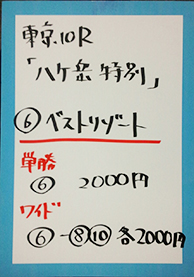 東京10R
「八ヶ岳特別」
⑥ベストリゾート
単勝
⑥ 2000円
ワイド
⑥-⑧⑩ 各2000円